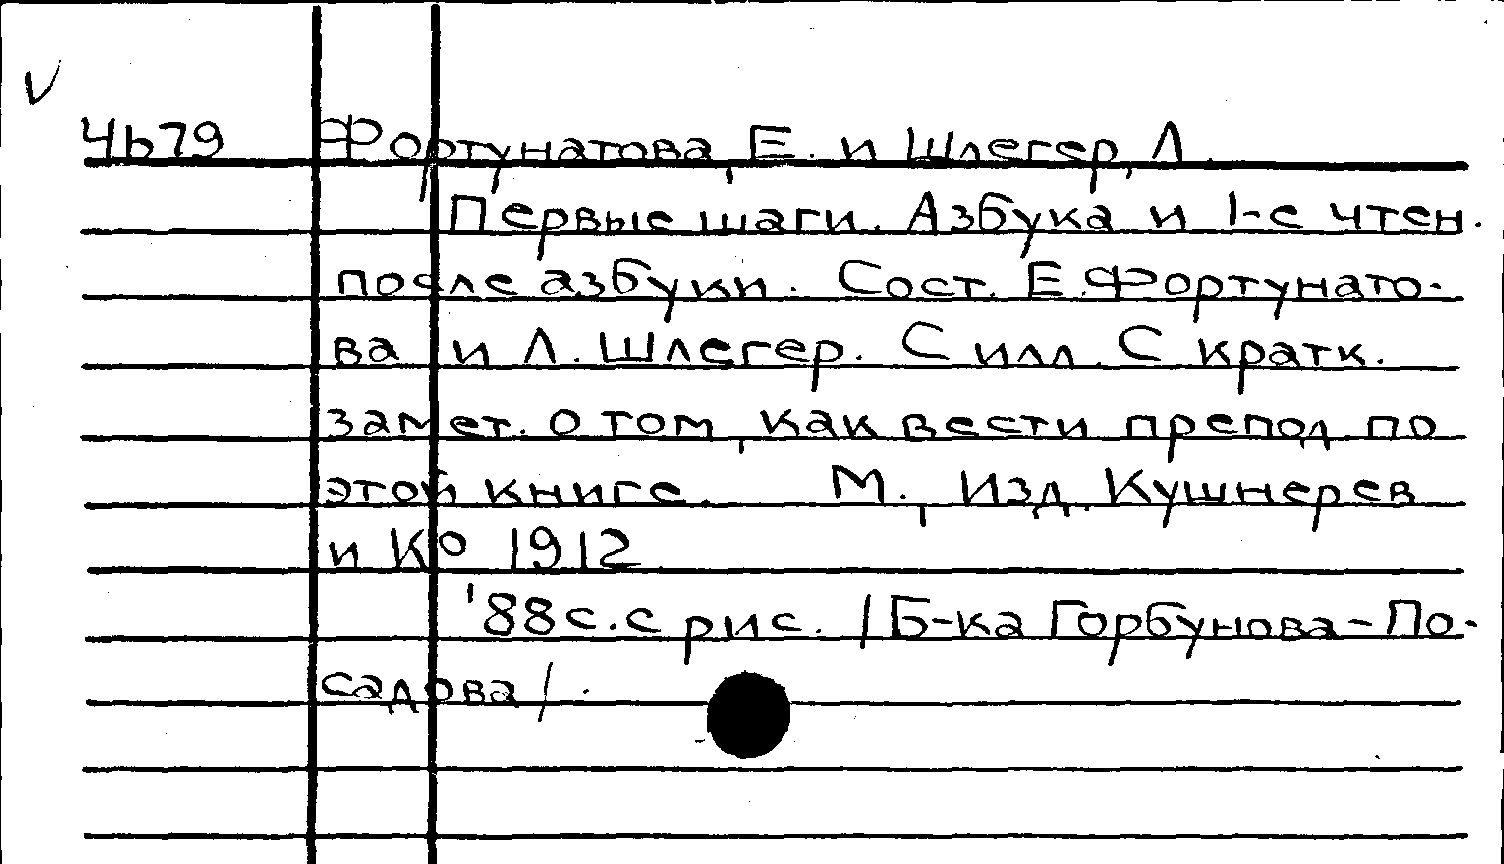 V
4b79 Фортунатова, Е. и Шлегер, Л.
Первые шаги. Азбука и 1-е чтен.
после азбуки. Сост. Е. Фортунато-
ва и Л. Шлегер. С илл. С кратк.
замет. о том, как вести препод. по
этой книге. М., Изд. Кушнерев
и Кº 1912
'88 с. с рис. /Б-ка Горбунова-По-
садова/.